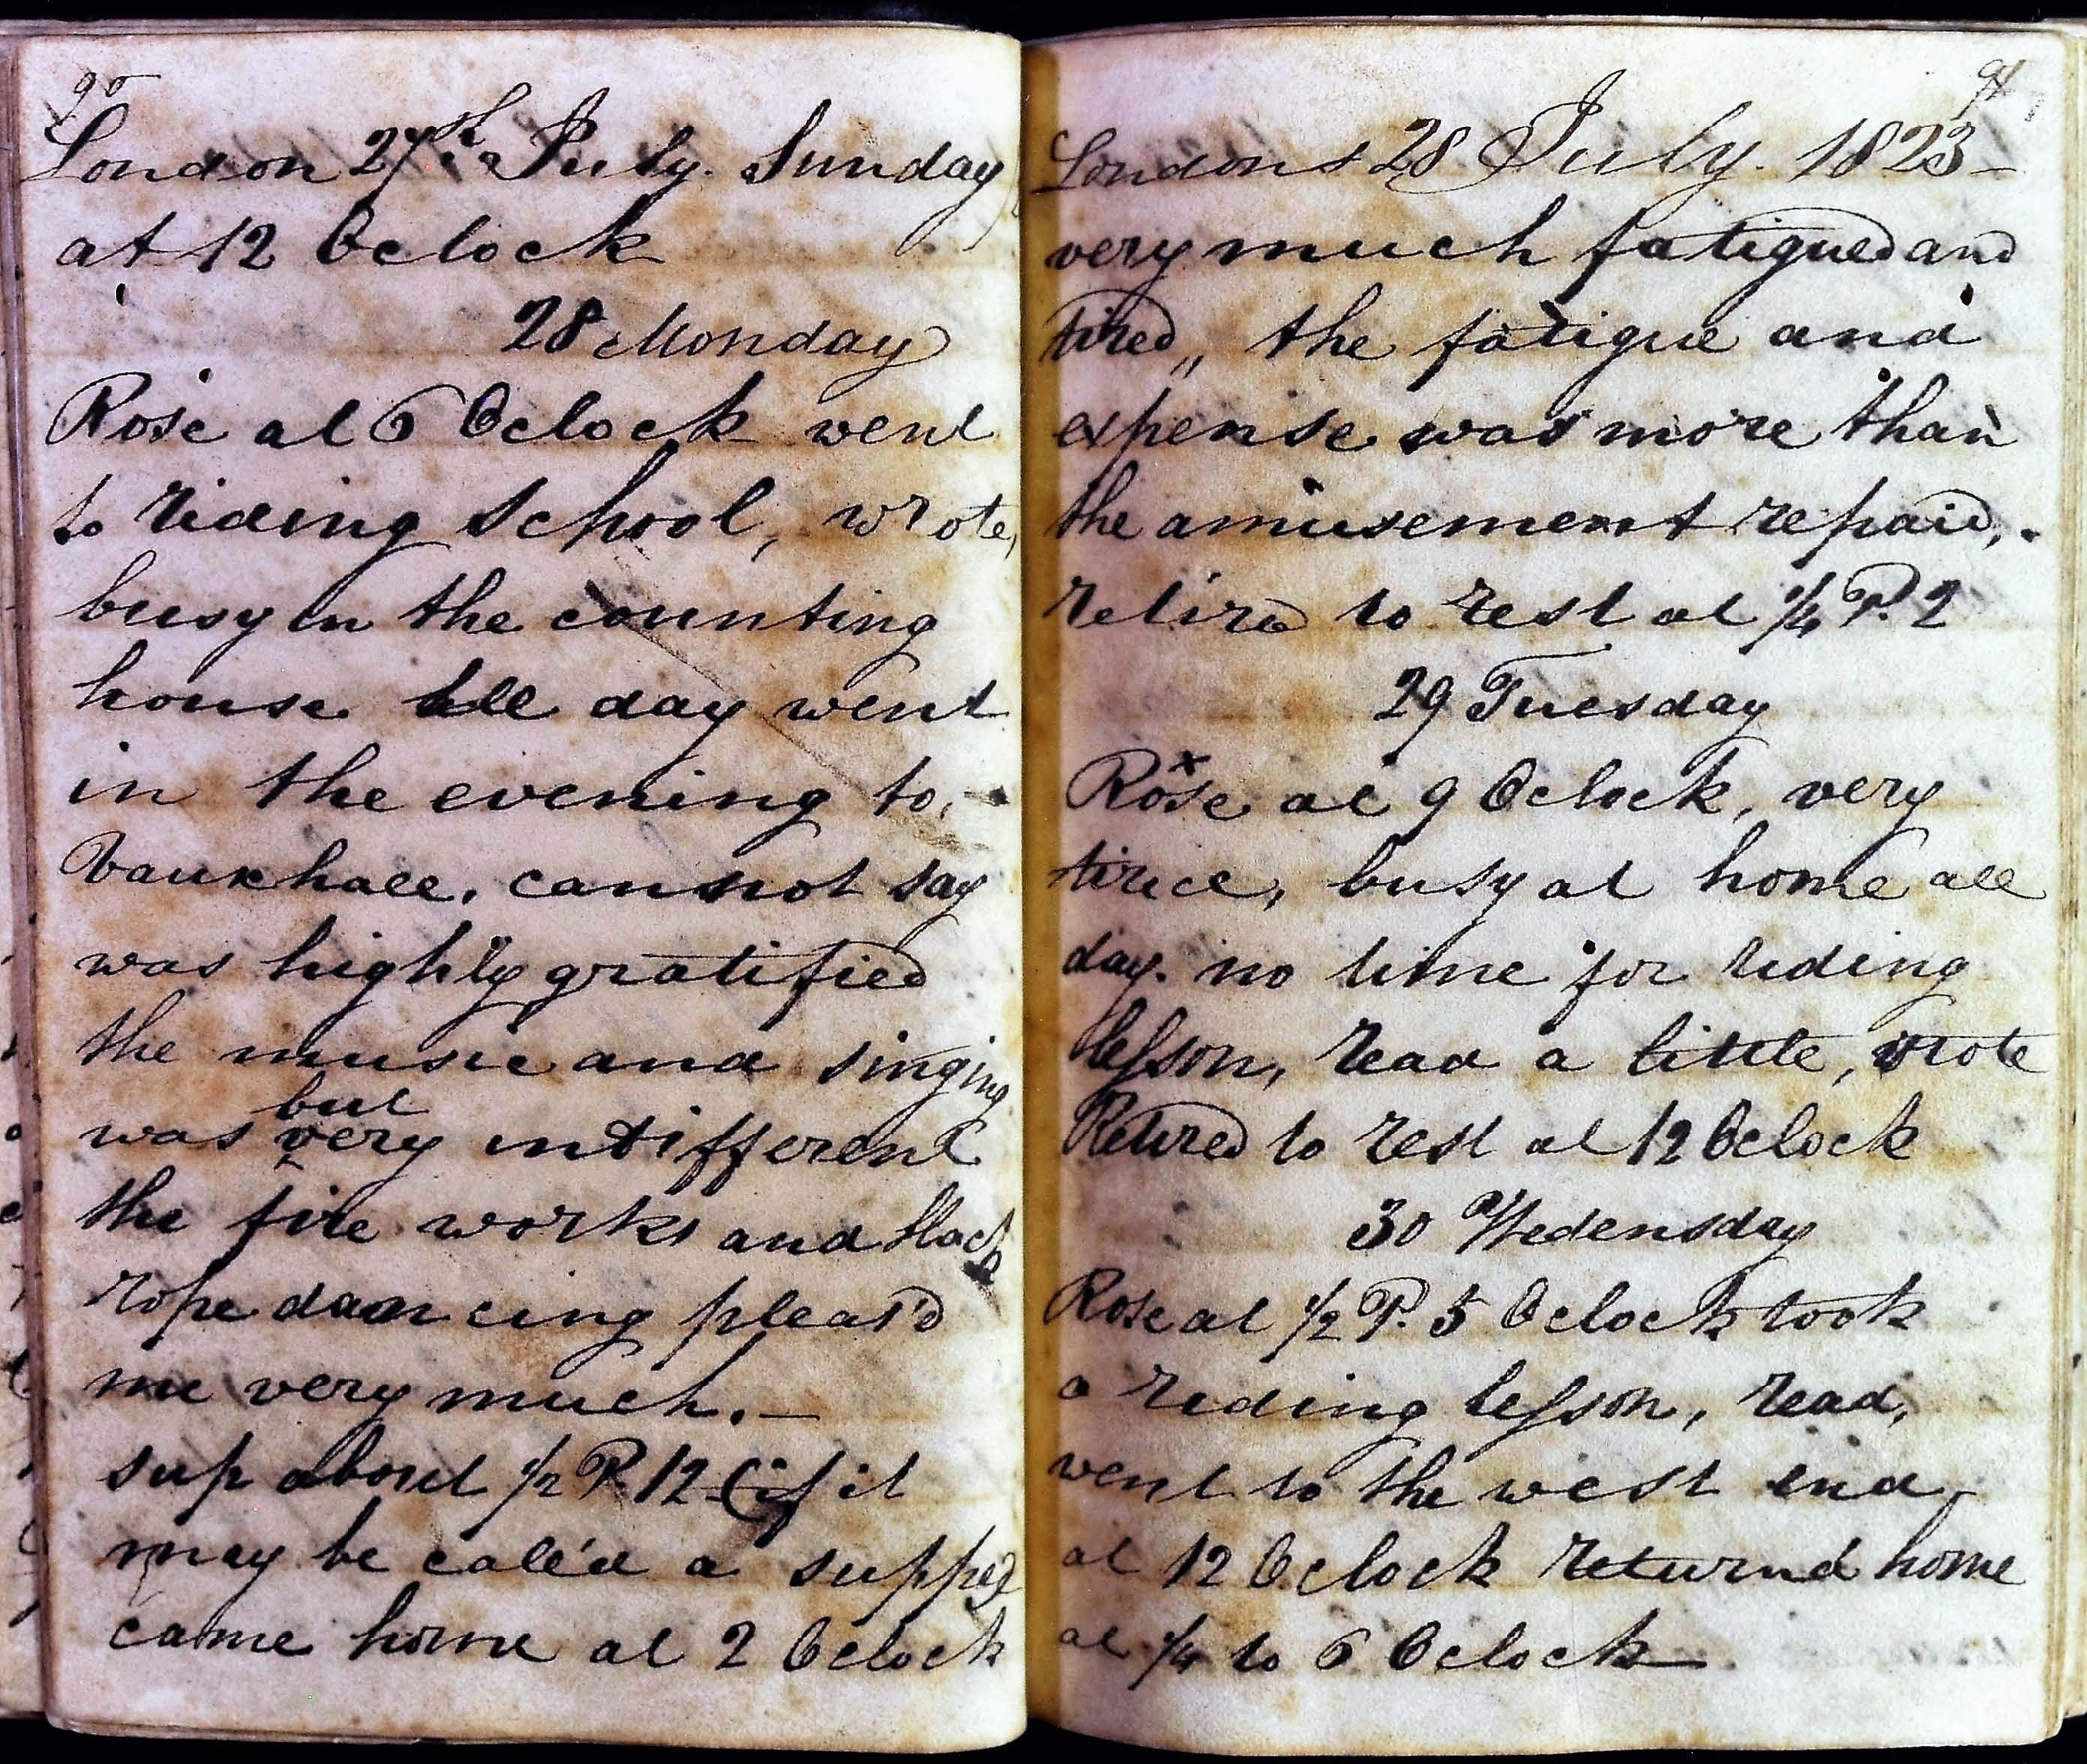 90
London 27th July. Sunday
at 12 Oclock
28 Monday
Rose at 6 Oclock went
to riding school, wrote,
busy in the counting
house all day went
in the evening to
Vauxhall, cannot say
was highly gratified
the music and singing
but
was very indifferent
the fire works and slack
rope dancing pleas'd
me very much. —
sup about 1/2 P. 12 (if it
may be call'd a supper)
came home at 2 Oclock
91
London 28 July. 1823 —
very much fatigued and
tired,, the fatigue and
expense was more than
the amusement repaid,.
retired to rest at 1/4 P. 2
29 Tuesday
Rose at 9 Oclock, very
tired, busy at home all
day. no time for riding
lesson, read a little, wrote
Retired to rest at 12 Oclock
30 Wedensday
Rose at 1/2 P. 5 Oclock took
a riding lesson, read,
went to the west end
at 12 Oclock returnd home
at 1/4 to 6 Oclock —